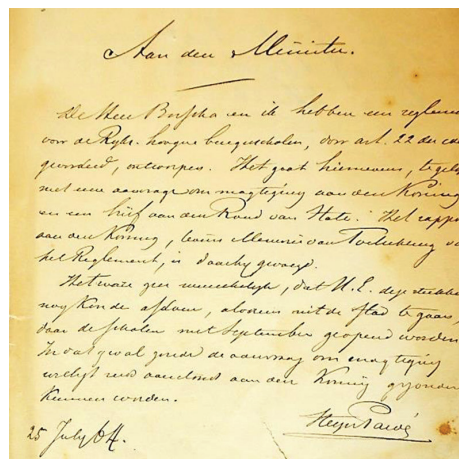 Aan den Minister.
De Heer Bosscha en ik hebben een reglem
voor de Ryks hoogere burgerscholen, door art. 22 der
gevorderd, ontworpen. Het gaat hiernevens,
met eene aanvrage om magtiging aan den Koning
en een brief aan den Raad van State. Het rappo
aan den Koning, tevens Memorie van Toelichting
het Reglement, is daarby gevoegd.
Het ware zeer wenschelyk, dat U.E. deze stukken
nog konde afdoen, alvorens uit de stad te gaan,
daar de scholen met September geopend worden
In dat geval zoude de aanvraag om magtiging
wellicht reeds aan den Koning gezonden
kunnen worden.
25 July 64.